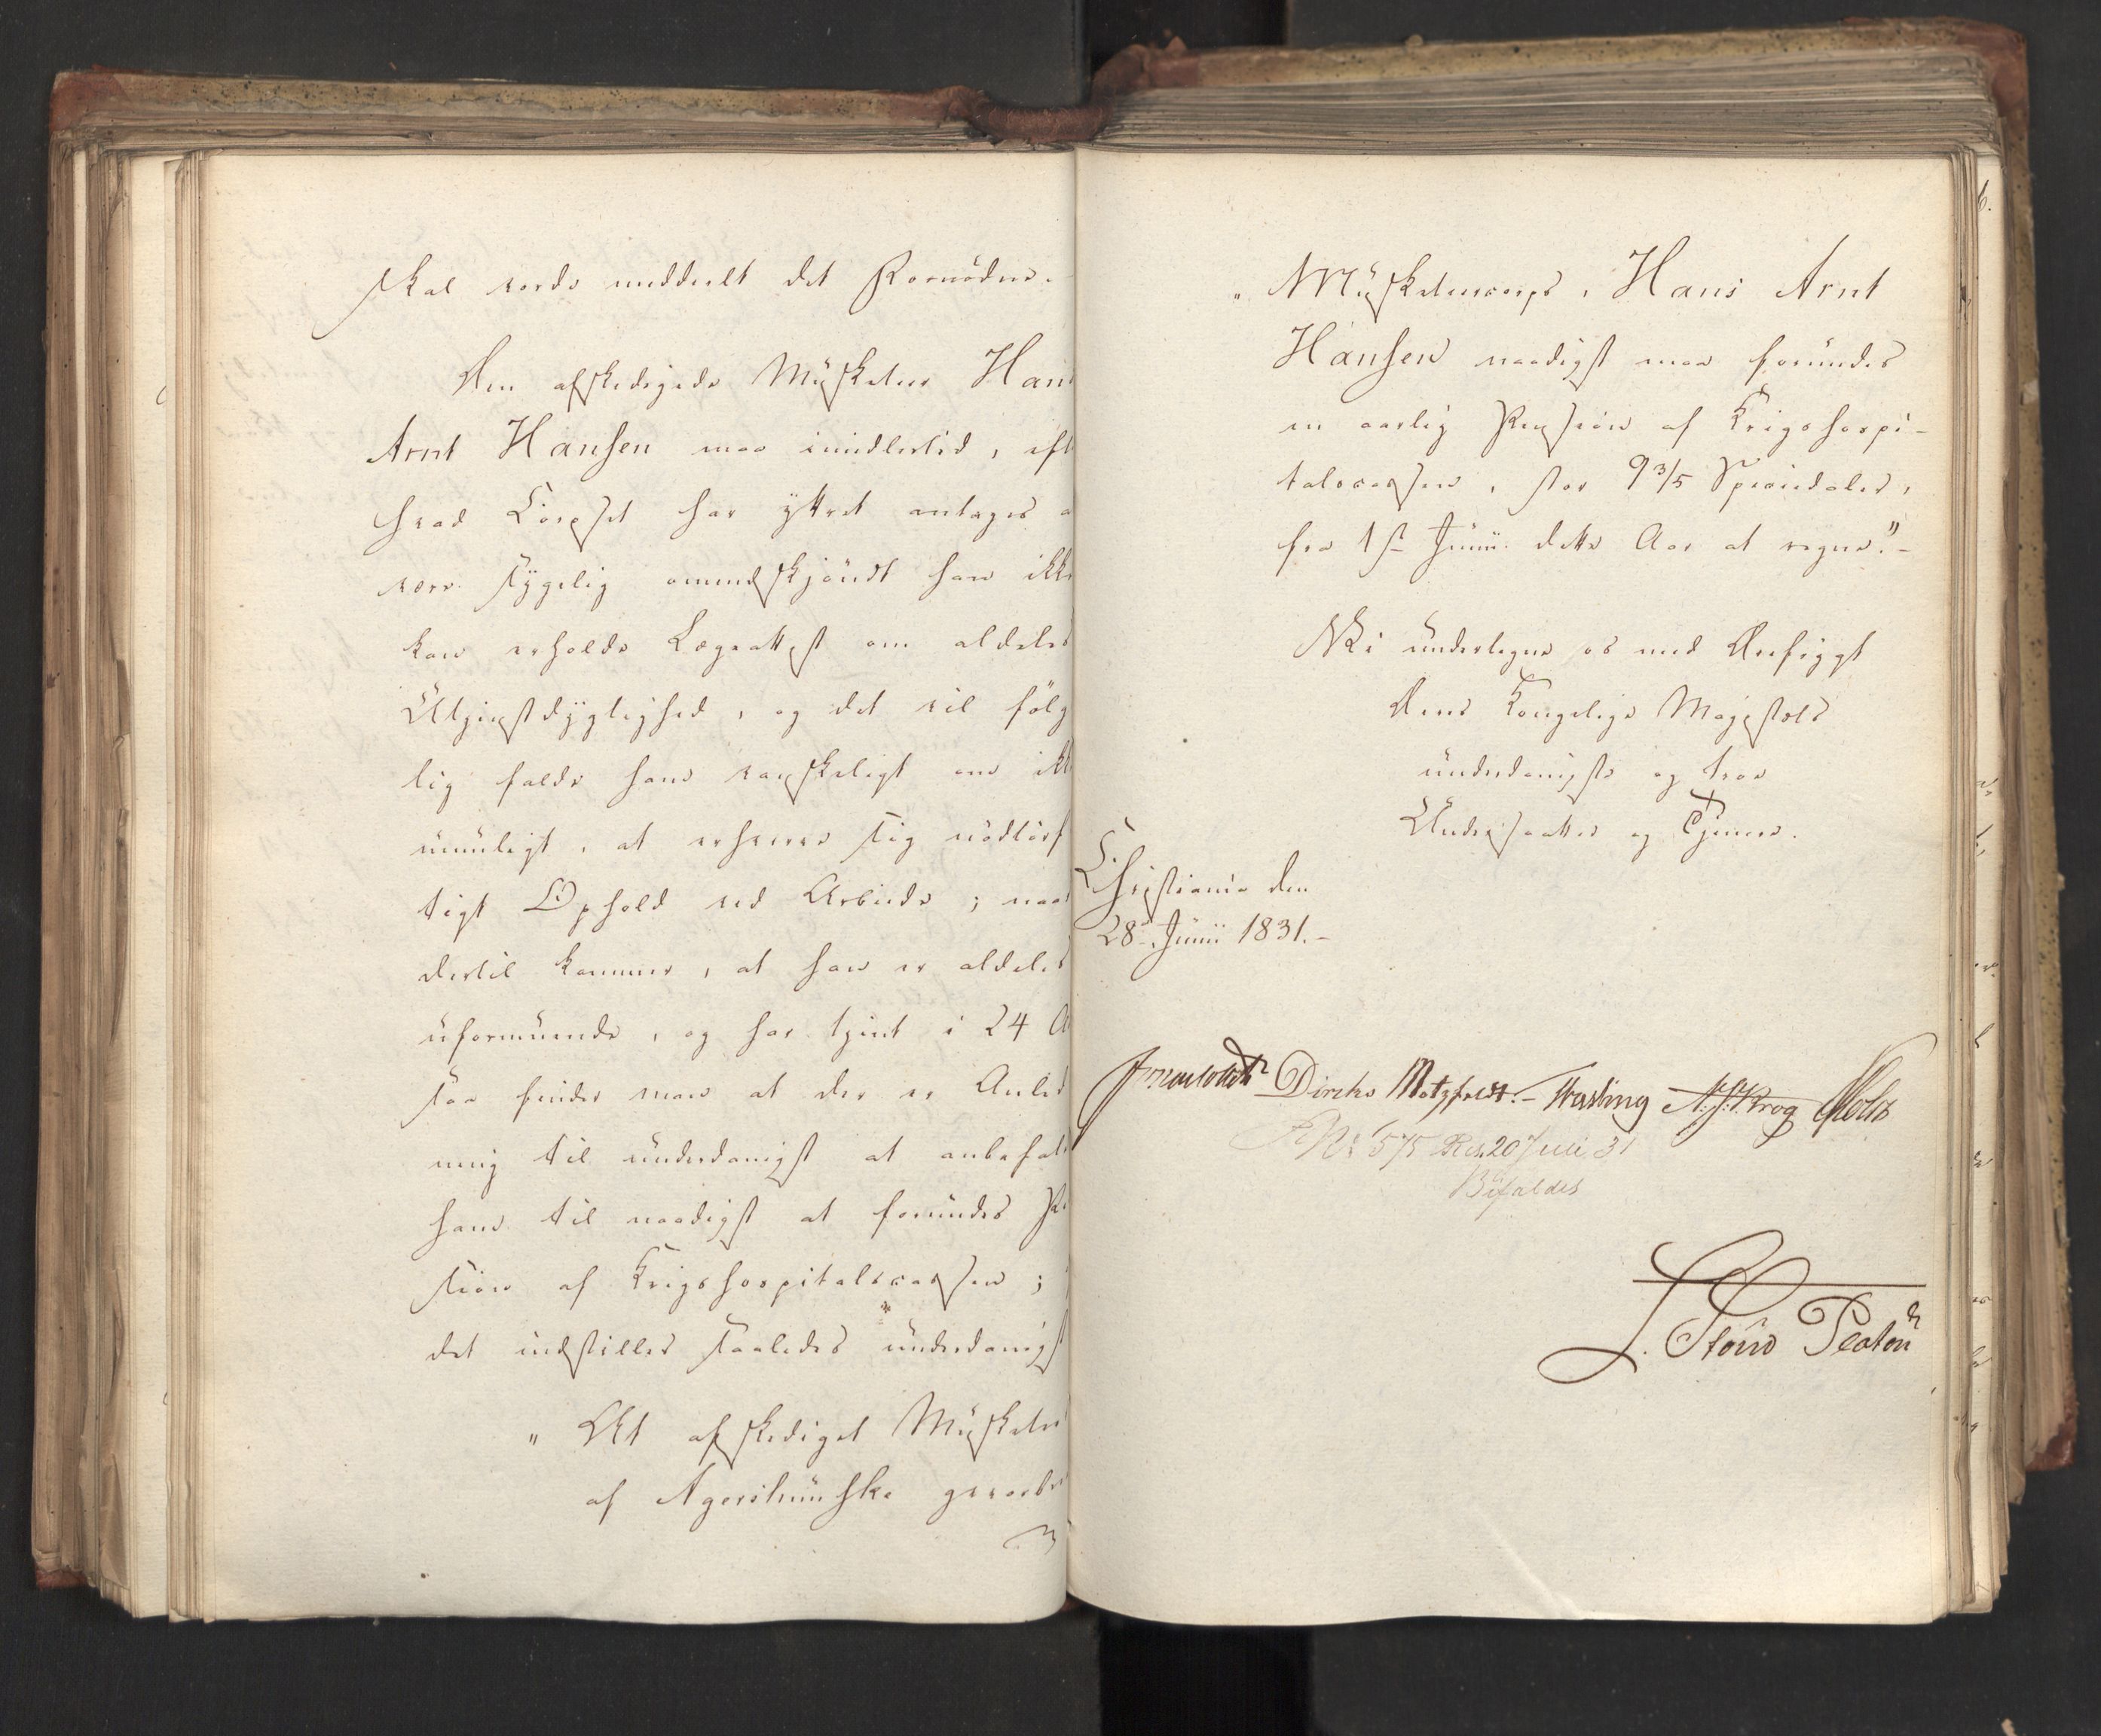 skal vorde meddeelt det Fornødne.
Den afskedigede Musketeer Han
Arnt Hansen maa imidlertid, eft
hvad Corpset har yttret antages a
være sygelig omendskjøndt han ikke
kan erholde Lægeattest om aldeles
Utjenstdygtighed, og det vil følg
lig falde ham vanskeligt om ikk
umuligt, at erhverve sig nødtørf
tigt Ophold ved Arbeide; naar
dertil kommer, at han er aldeles
uformuende, og har tjent i 24 A
saa finder man at der er Anled
ning til underdanigst at anbefale
ham til naadigst at forundes Pe
sion af Krigshospitalscassen;
det indstilles saaledes underdanigst
"At afskediget Musketeer
af Agershuuske gevorbne
" Musketeercorps, Hans Arnt
Hansen naadigst maa forundes
en aarlig Pension af Krigshospi-
talscassen, stor 9 3/5 Speciedaler,
fra 1st Junii dette Aar at regne."-
Vi undertegne os med Ærefrygt
Deres Kongelige Majestæts
underdanigste og troe
Undersaatter og Tjenere.
Christiania den
28de Junii 1831.-
Diriks Motzfeldt.- Fasting Krog Holst
No 575 Res. 20 Juli 31
Bifaldes
Stoud Platou